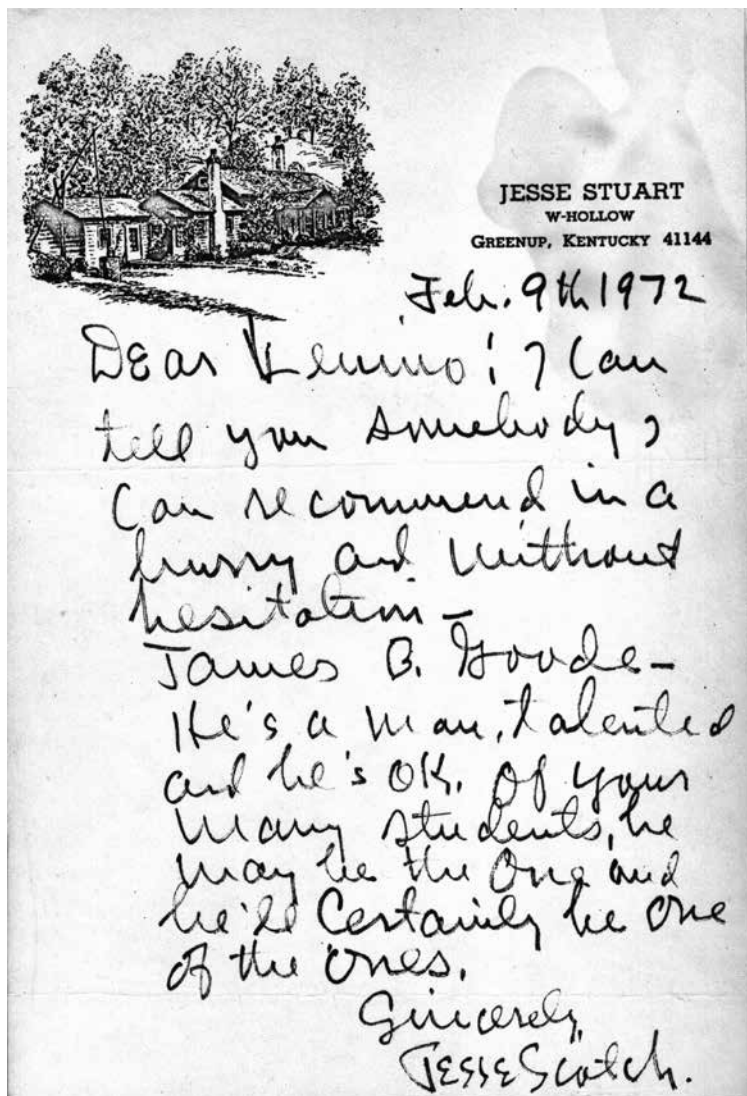 JESSE STUART
W-HOLLOW
GREENUP, KENTUCKY 41144
Feb. 9th 1972
Dear Lenino: I Can
tell you somebody I
Can recommend in a
hurry and without
hesitation—
James B. Goode—
He's a man, talented
and he's OK. Of your
many students, he
may be the One and
he'll Certainly be one
of the ones.
Sincerely,
Jesse Scotch.